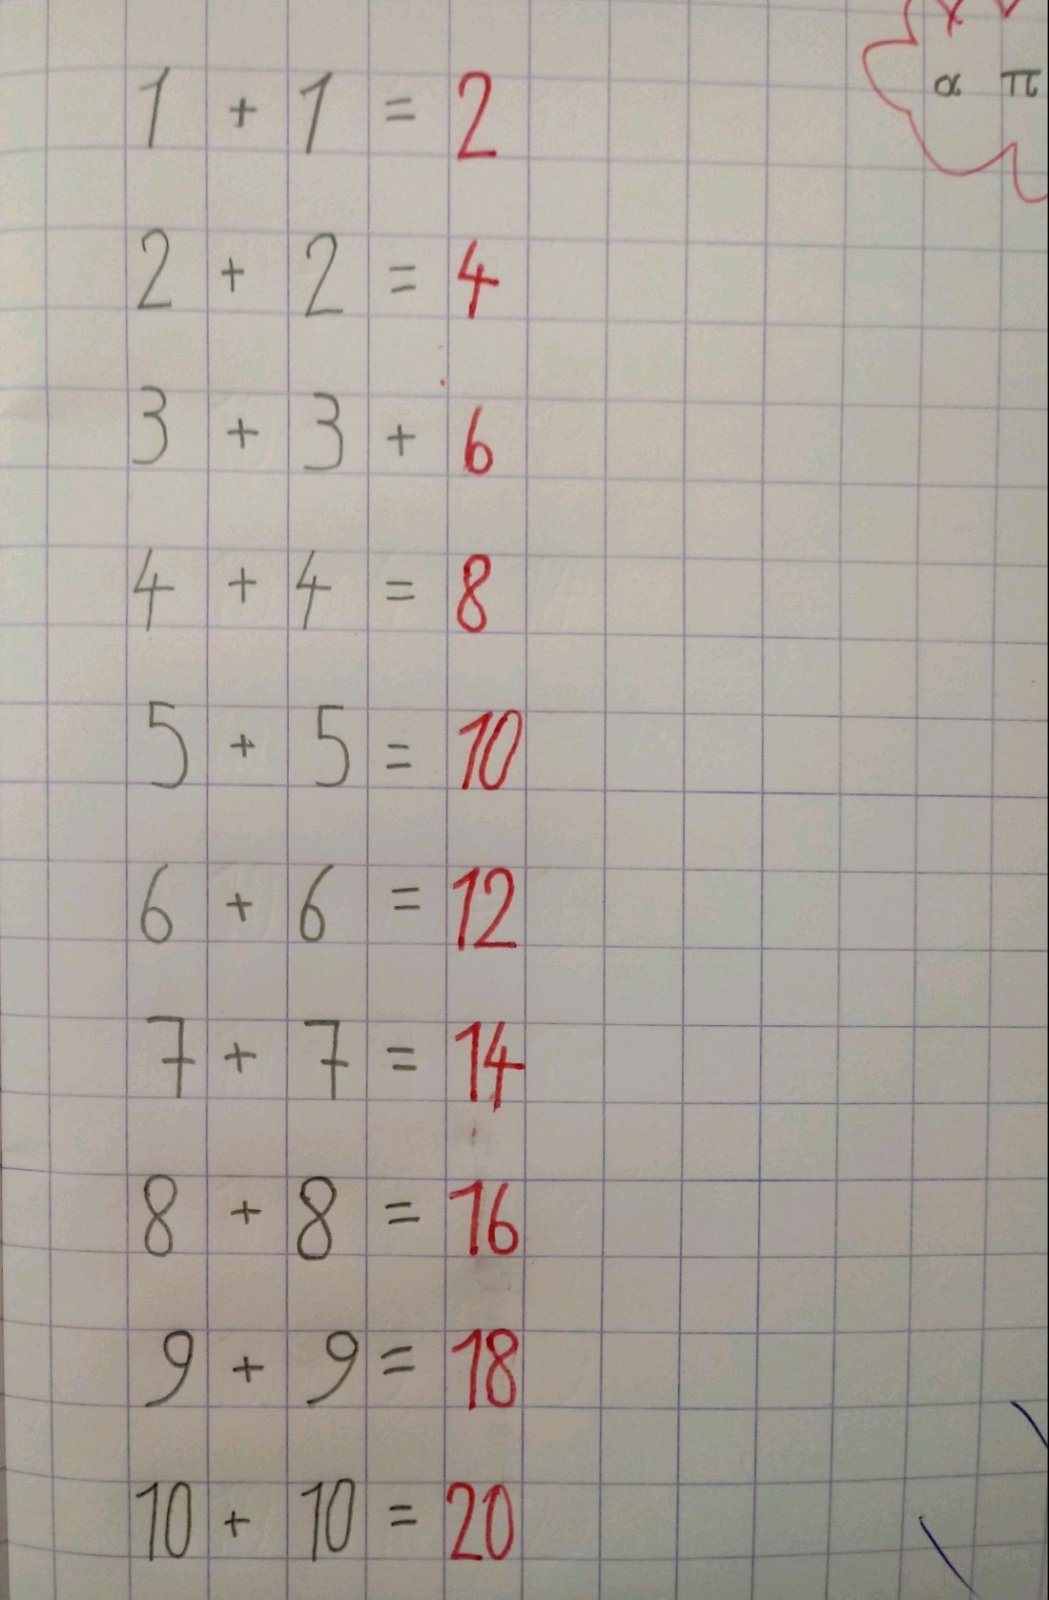 α π
1 + 1 = 2
2 + 2 = 4
3 + 3 + 6
4 + 4 = 8
5 + 5 = 10
6 + 6 = 12
7 + 7 = 14
8 + 8 = 16
9 + 9 = 18
10 + 10 = 20